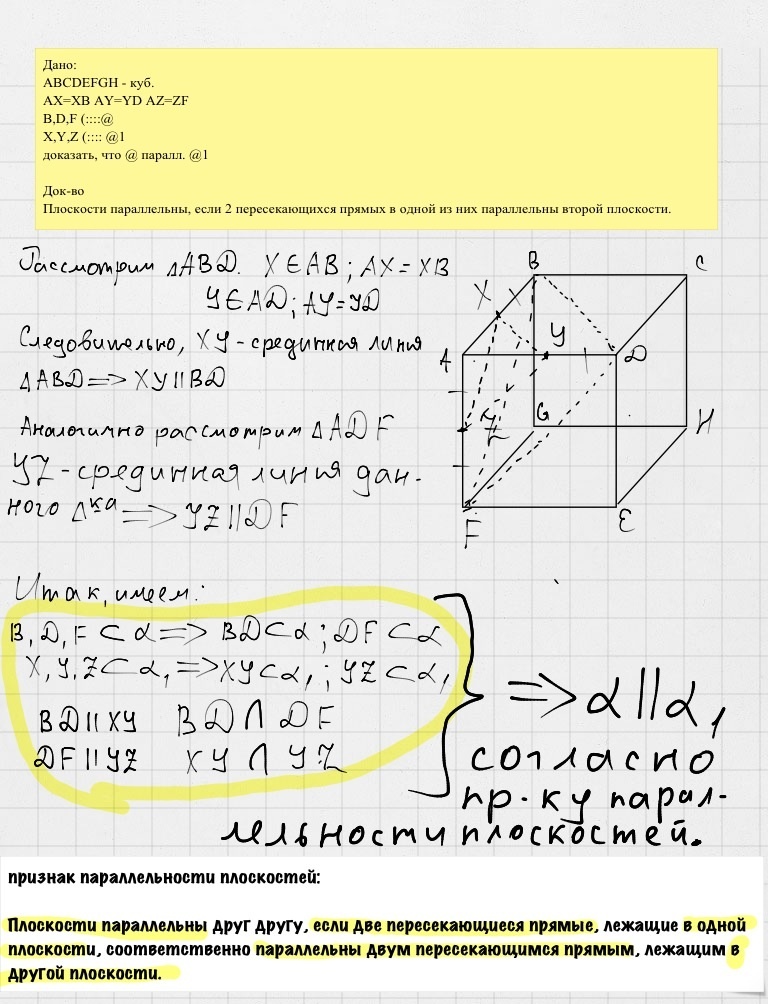 Дано:
ABCDEFGH - куб.
AX=XB AY=YD AZ=ZF
B,D,F (::::@
X,Y,Z (:::: @1
доказать, что @ паралл. @1
Док-во
Плоскости параллельны, если 2 пересекающихся прямых в одной из них параллельны второй плоскости.
Рассмотрим △ABD. X∈AB; AX=XB
Y∈AD; AY=YD
Следовительно, XY-срединная линия
△ABD=>XY||BD
Аналогично рассмотрим △ADF
YZ-срединная линия дан-
ного △ка=>YZ||DF
B
C
X
Y
A
D
Z
G
H
F
E
Итак, имеем:
B,D,F⊂α=>BD⊂α; DF⊂α
X,Y,Z⊂α₁=>XY⊂α₁; YZ⊂α₁
BD||XY BD∩DF
DF||YZ XY∩YZ
=>α||α₁
согласно
пр-ку парал-
лельности плоскостей.
признак параллельности плоскостей:
Плоскости параллельны друг другу, если две пересекающиеся прямые, лежащие в одной
плоскости, соответственно параллельны двум пересекающимся прямым, лежащим в
другой плоскости.